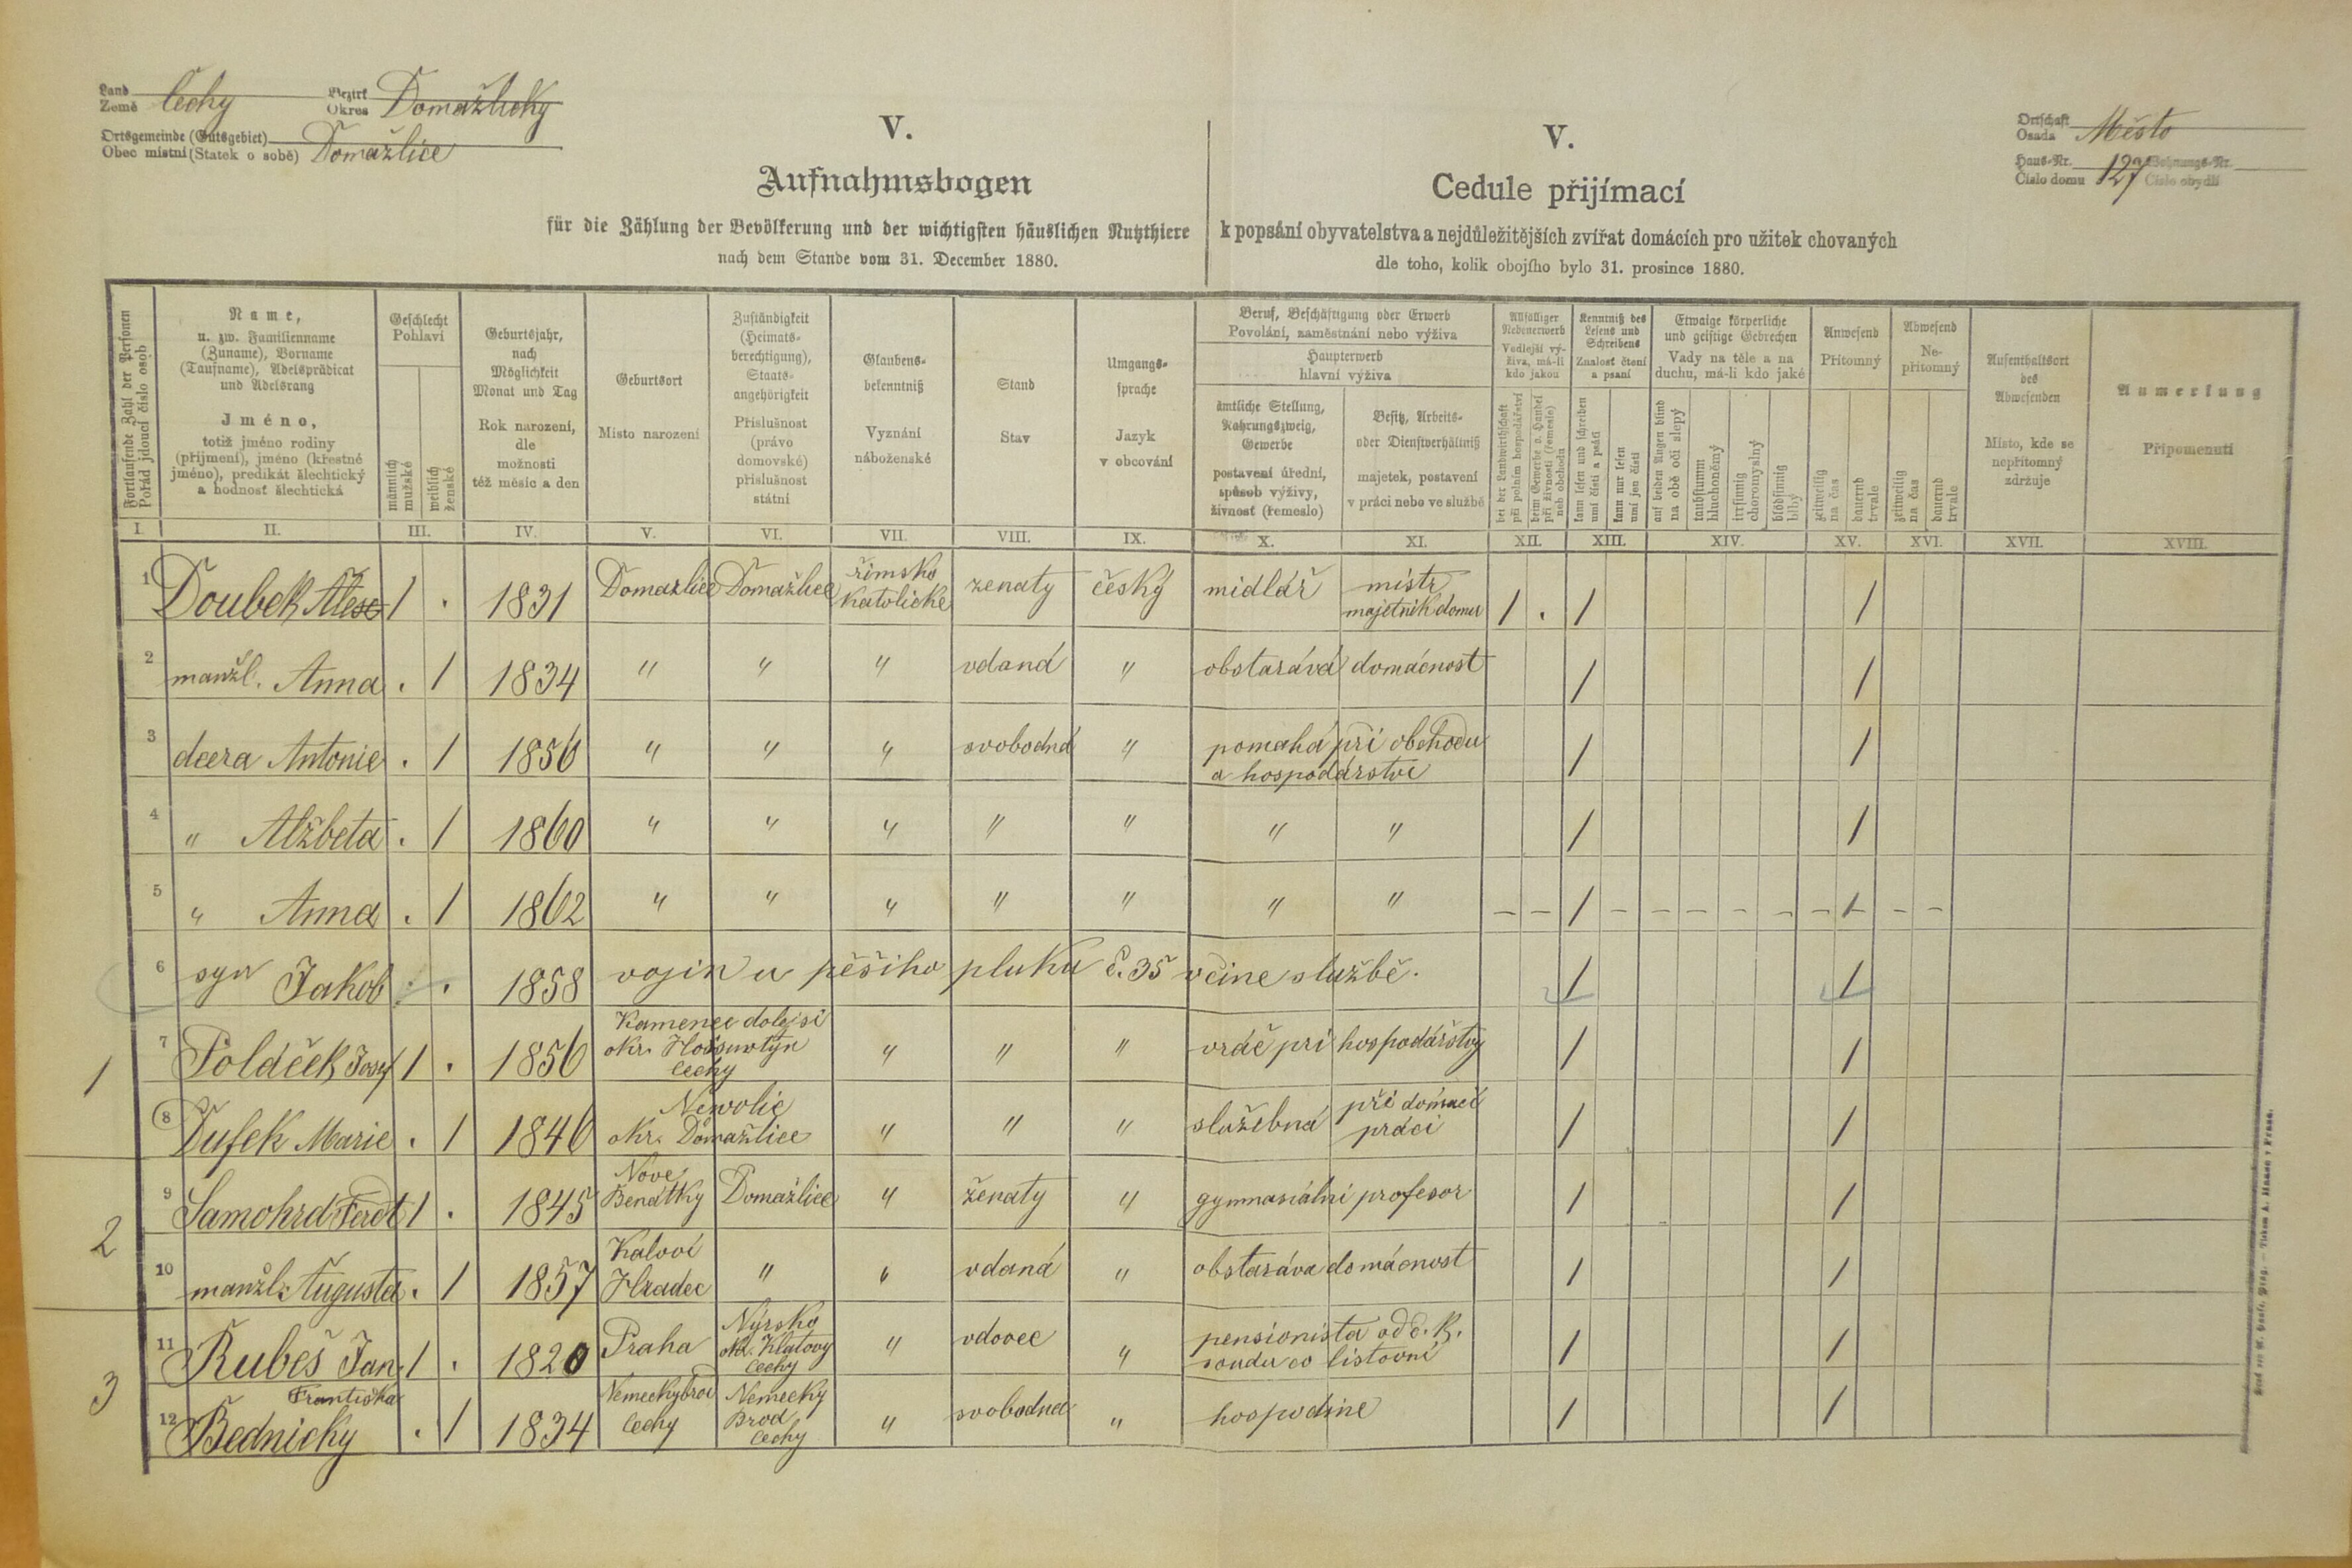 Land
Země Čechy
Bezirk
Okres Domažlický
Ortsgemeinde (Gutsgebiet)
Obec místní (Statek o sobě) Domažlice
V.
Aufnahmsbogen
für die Zählung der Bevölkerung und der wichtigsten häuslichen Nutzthiere
nach dem Stande vom 31. December 1880.
V.
Cedule přijímací
k popsání obyvatelstva a nejdůležitějších zvířat domácích pro užitek chovaných
dle toho, kolik obojího bylo 31. prosince 1880.
Ortschaft
Osada Město
Haus-Nr.
Číslo domu 127
Wohnungs-Nr.
Číslo obydlí
Fortlaufende Zahl der Personen
Pořád jdoucí číslo osob
Name,
u. zw. Familienname
(Zuname), Vorname
(Taufname), Adelsprädicat
und Adelsrang
Jméno,
totiž jméno rodiny
(příjmení), jméno (křestné
jméno), predikát šlechtický
a hodnosť šlechtická
Geschlecht
Pohlaví
männlich
mužské
weiblich
ženské
Geburtsjahr,
nach
Möglichkeit
Monat und Tag
Rok narození,
dle
možnosti
též měsíc a den
Geburtsort
Místo narození
Zuständigkeit
(Heimats-
berechtigung),
Staats-
angehörigkeit
Příslušnost
(právo
domovské)
příslušnost
státní
Glaubens-
bekenntniß
Vyznání
náboženské
Stand
Stav
Umgangs-
sprache
Jazyk
v obcování
Beruf, Beschäftigung oder Erwerb
Povolání, zaměstnání nebo výživa
Haupterwerb
hlavní výživa
ämtliche Stellung,
Nahrungszweig,
Gewerbe
postavení úřední,
spůsob výživy,
živnosť (řemeslo)
Besitz, Arbeits-
oder Dienstverhältniß
majetek, postavení
v práci nebo ve službě
Allfälliger
Nebenerwerb
Vedlejší vý-
živa, má-li
kdo jakou
bei der Landwirthschaft
při polním hospodářství
beim Gewerbe o. Handel
při živnosti (řemesle)
neb obchodu
Kenntniß des
Lesens und
Schreibens
Znalosť čtení
a psaní
kann lesen und schreiben
umí čísti a psáti
kann nur lesen
umí jen čísti
Etwaige körperliche
und geistige Gebrechen
Vady na těle a na
duchu, má-li kdo jaké
auf beiden Augen blind
na obě oči slepý
taubstumm
hluchoněmý
irrsinnig
choromyslný
blödsinnig
blbý
Anwesend
Přítomný
zeitweilig
na čas
dauernd
trvale
Abwesend
Ne-
přítomný
zeitweilig
na čas
dauernd
trvale
Aufenthaltsort
des
Abwesenden
Místo, kde se
nepřítomný
zdržuje
Anmerkung
Připomenutí
I. II. III. IV. V. VI. VII. VIII. IX. X. XI. XII. XIII. XIV. XV. XVI. XVII. XVIII.
1 Doubek 1 . 1831 Domazlice Domažlice římsko katolické zenatý český midlář mistr majetník domu 1 . 1 1
2 manžl. Anna . 1 1834 " " " vdaná " obstarává domácnost 1 1
3 dcera Antonie . 1 1856 " " " svobodná " pomahá při obchodu a hospodárství 1 1
4 " Alžbeta . 1 1860 " " " " " " " 1 1
5 " Anna . 1 1862 " " " " " " " – – 1 – – – – – – 1 – –
6 syn Jakob . 1858 vojin u pěšiho pluku č. 35 včine službě. 1 1
1
7 Poláček Josef 1 . 1856 Kamenec dolejsi okr. Čechy " " " při hospodářstvy 1 1
8 Tufek Marie . 1 1846 Newolic okr. Domažlice " " " služebná při domací práci 1 1
2
9 Samohrd Ferdt 1 . 1845 Nové Benátky Domažlice " ženatý " gymnasiální profesor 1 1
10 manžl. Augusta . 1 1857 Hradec " " vdaná " obstaráva domácnost 1 1
3
11 Rubeš Jan 1 . 1820 Praha Nýrsko okr. Klatovy Čechy " vdovec " pensionista od c. k. soudu co listovní 1 1
12 Františka Bednicky . 1 1834 Nemeckybrod Čechy Nemecky Brod Čechy " svobodná " hospodine 1 1